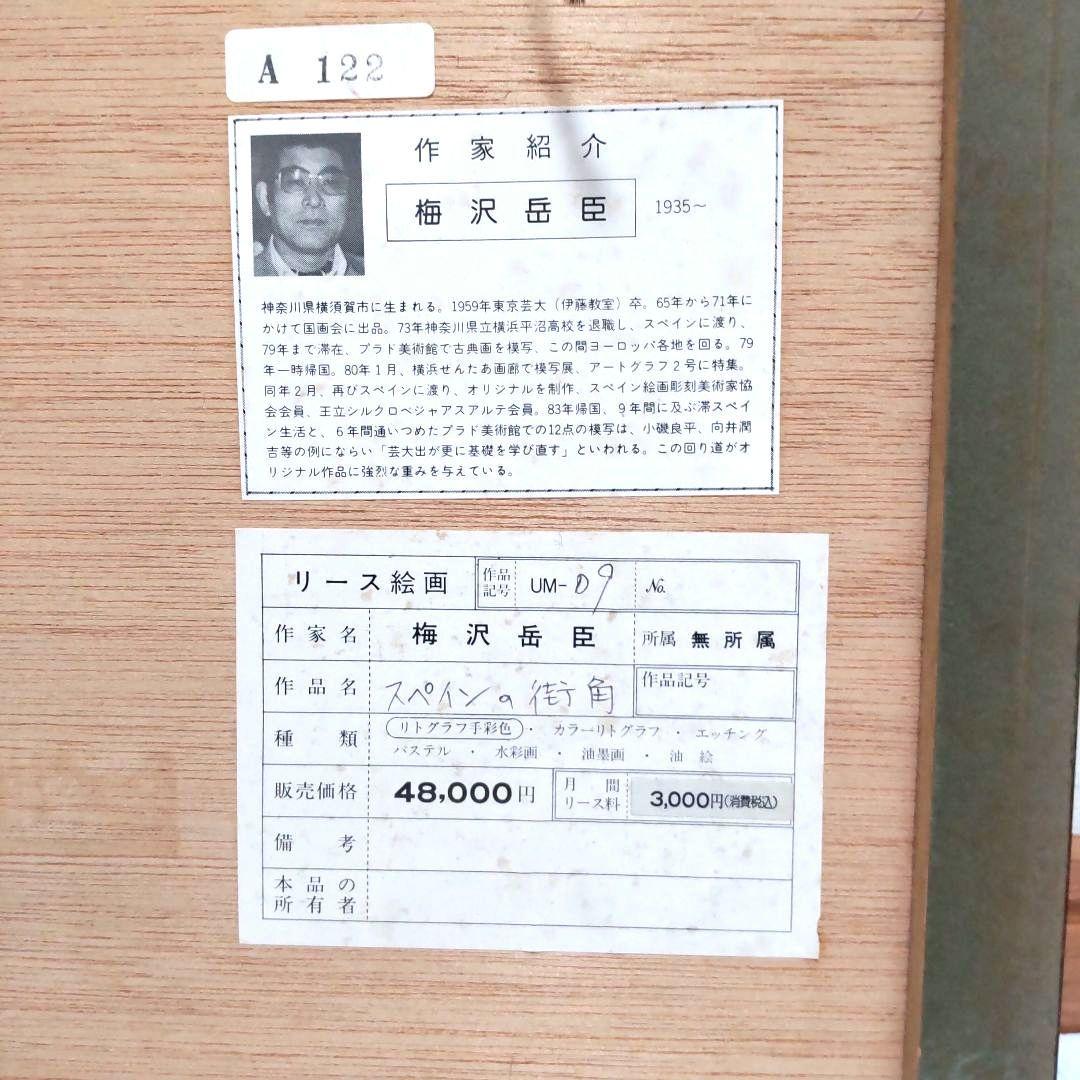 A 122
作家紹介
梅沢岳臣 1935～
神奈川県横須賀市に生まれる。1959年東京芸大（伊藤教室）卒。65年から71年に
かけて国画会に出品。73年神奈川県立横浜平沼高校を退職し、スペインに渡り、
79年まで滞在、プラド美術館で古典画を模写、この間ヨーロッパ各地を回る。79
年一時帰国。80年１月、横浜せんたあ画廊で模写展、アートグラフ２号に特集。
同年２月、再びスペインに渡り、オリジナルを制作、スペイン絵画彫刻美術家協
会会員、王立シルクロベジャアスアルテ会員。83年帰国、９年間に及ぶ滞スペイ
ン生活と、６年間通いつめたプラド美術館での12点の模写は、小磯良平、向井潤
吉等の例にならい「芸大出が更に基礎を学び直す」といわれる。この回り道がオ
リジナル作品に強烈な重みを与えている。
リース絵画 作品記号 UM-09 No.
作家名 梅沢岳臣 所属 無所属
作品名 スペインの街角 作品記号
種類 リトグラフ手彩色・カラーリトグラフ・エッチング
パステル・水彩画・油墨画・油絵
販売価格 48,000円 月間リース料 3,000円(消費税込)
備考
本品の所有者